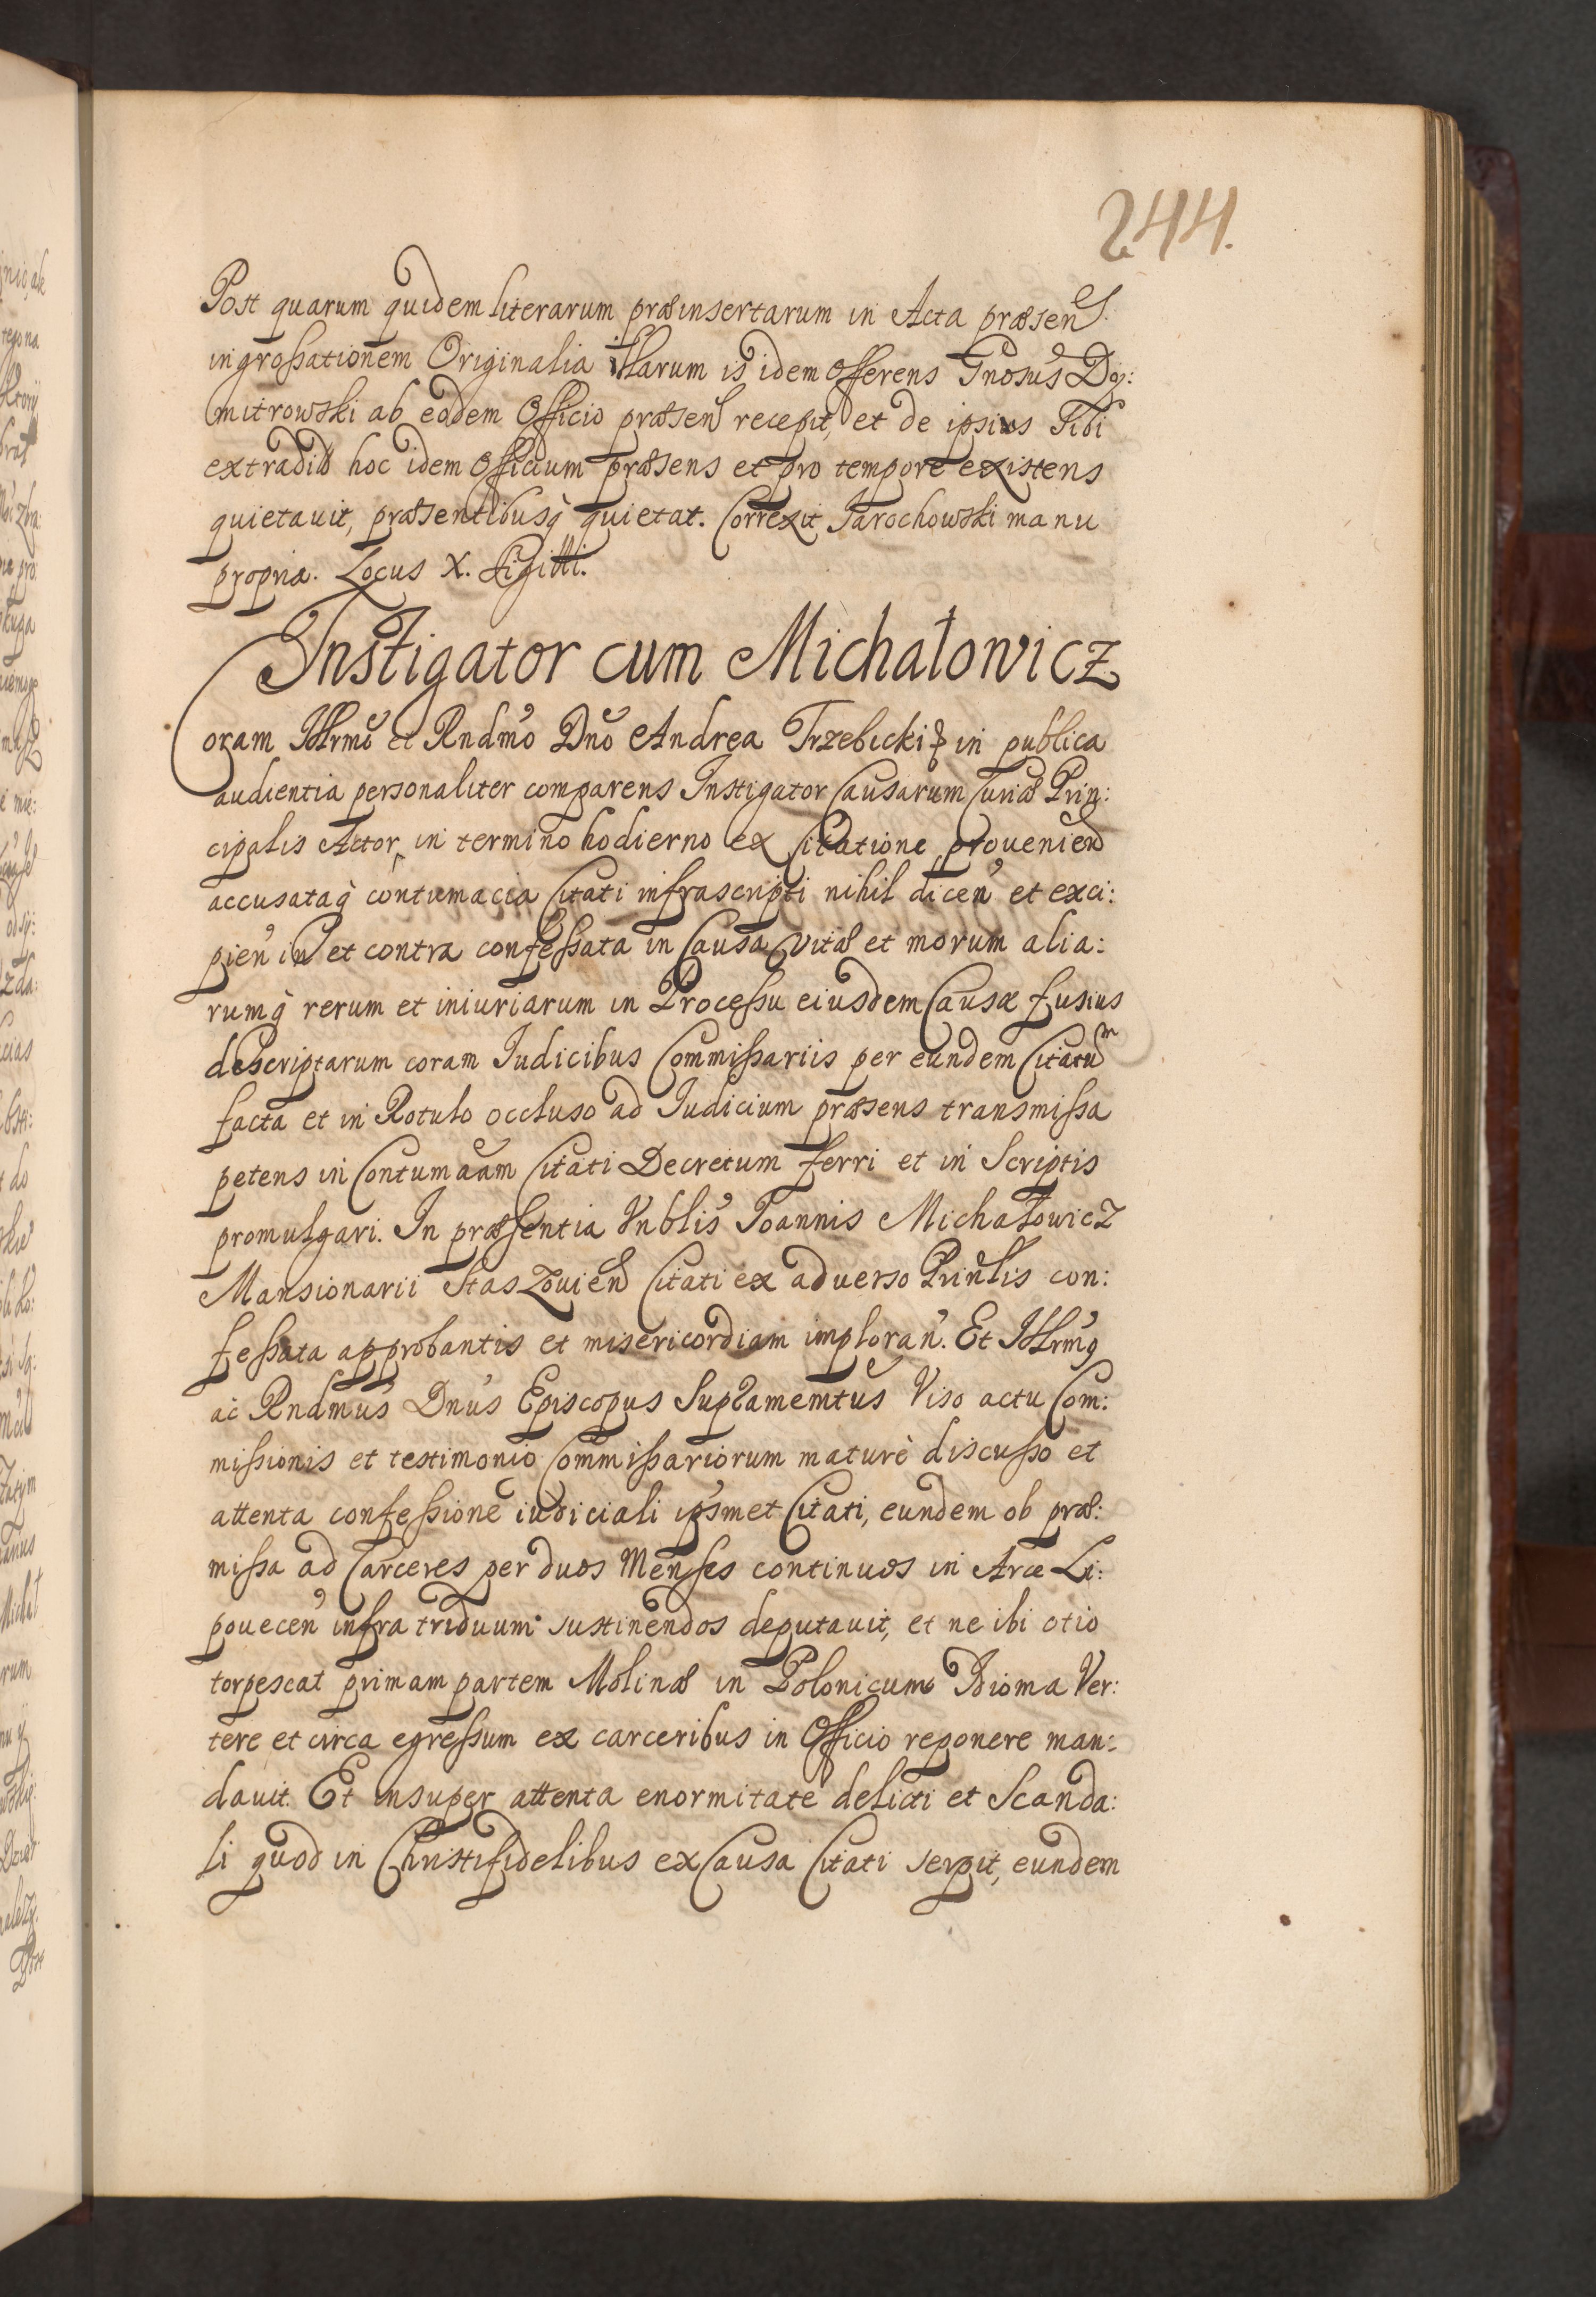 244.
Post quarum quidem literarum præinsertarum in Acta præsen
ingrossationem Originalia illarum is idem offerens Gnosus Dy:
mitrowski ab eodem Officio præsen recepit, et de ipsius sibi
extradit hoc idem officium præsens et pro tempore existens
quietauit, præsentibusq quietat. Correxit Jarochowski manu
propria. Locus X. Sigilli.
Instigator cum Michałowicz
Coram Illrmo et Rndmo Dno Andrea Trzebicki in publica
audientia personaliter comparens Instigator Causarum Curiæ Prin:
cipalis Actor in termino hodierno ex Citatione prouenien
accusataq contumacia Citati infrascripti nihil dicen et exci:
pien in et contra confessata in Causa Vitæ et morum alia:
rumq rerum et iniuriarum in Processu eiusdem Causæ fusius
descriptarum coram Iudicibus Commissariis per eundem Citatum
facta et in Rotulo occluso ad Iudicium præsens transmissa
petens in Contumaciam Citati Decretum ferri et in Scriptis
promulgari. In præsentia Vnblis Joannis Michałowicz
Mansionarii Staszouien Citati ex aduerso Prinlis con:
fessata approbantis et misericordiam imploran. Et Illrmq
ac Rndmus Dnus Episcopus Supramemtus Viso actu Com:
missionis et testimonio Commissariorum maturè discusso et
attenta confessione iudiciali ipsmet Citati, eundem ob præ:
missa ad Carceres per duos Menses continuos in Arce Li:
pouecen infra triduum sustinendos deputauit, et ne ibi otio
torpescat primam partem Molinæ in Polonicum Idioma Ver:
tere et circa egressum ex carceribus in Officio reponere man:
dauit. Et insuper attenta enormitate delicti et Scanda:
li quod in Christifidelibus ex Causa Citati serpit, eundem